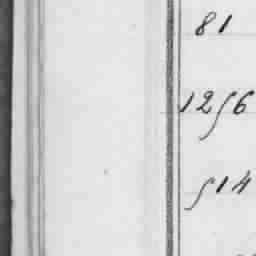 81
1256
514